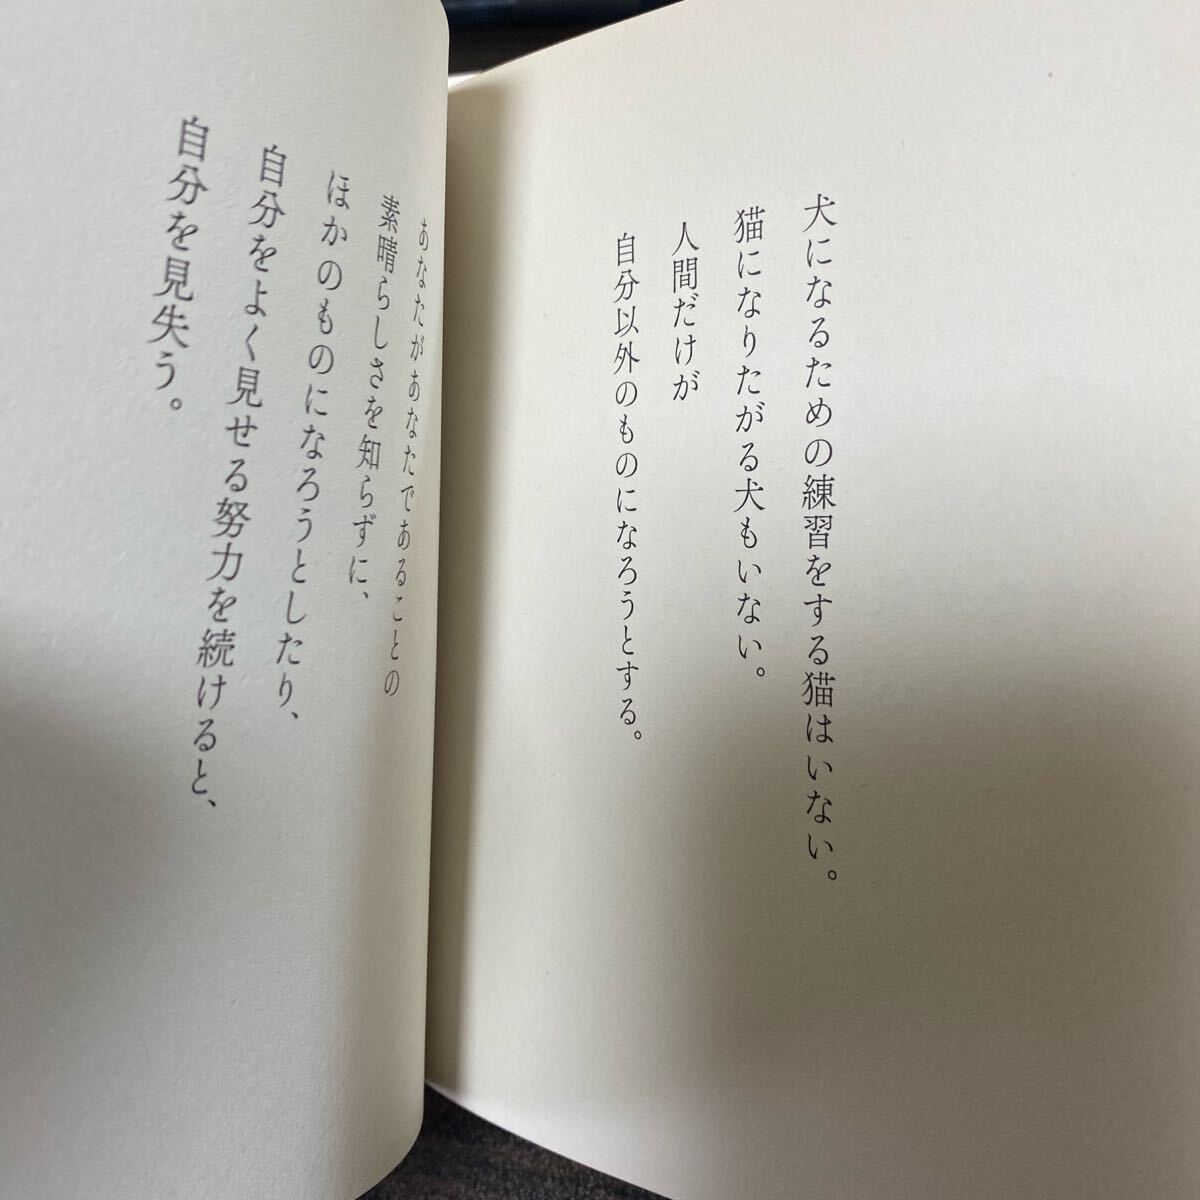 犬になるための練習をする猫はいない。
猫になりたがる犬もいない。
人間だけが
自分以外のものになろうとする。
あなたがあなたであることの
素晴らしさを知らずに、
ほかのものになろうとしたり、
自分をよく見せる努力を続けると、
自分を見失う。